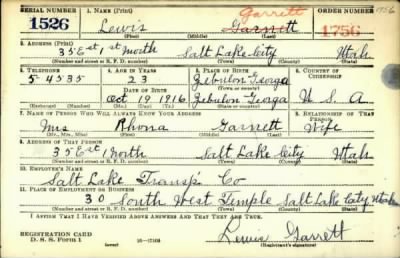 SERIAL NUMBER 1. NAME (Print) Garrett ORDER NUMBER 1756
1526 Lewis Garnett 1756
(First) (Middle) (Last)
2. ADDRESS (Print)
35 Est 1st North Salt Lake City Utah
(Number and street or R. F. D. number) (Town) (County) (State)
3. TELEPHONE 4. AGE IN YEARS 5. PLACE OF BIRTH 6. COUNTRY OF CITIZENSHIP
5-4535 23 Zebulon Georga
DATE OF BIRTH (Town or county)
Oct 19 1916 Zebulon Georga U. S. A
(Exchange) (Number) (Mo.) (Day) (Yr.) (State or country)
7. NAME OF PERSON WHO WILL ALWAYS KNOW YOUR ADDRESS 8. RELATIONSHIP OF THAT PERSON
Mrs Rhona Garnett Wife
(Mr., Mrs., Miss) (First) (Middle) (Last)
9. ADDRESS OF THAT PERSON
35 Est North Salt Lake City Utah
(Number and street or R. F. D. number) (Town) (County) (State)
10. EMPLOYER'S NAME
Salt Lake Transp. Co
11. PLACE OF EMPLOYMENT OR BUSINESS
30 South West Temple Salt Lake Caty Utah
(Number and street or R. F. D. number) (Town) (County) (State)
I AFFIRM THAT I HAVE VERIFIED ABOVE ANSWERS AND THAT THEY ARE TRUE.
REGISTRATION CARD Lewis Garrett
D. S. S. Form 1 (Registrant's signature)